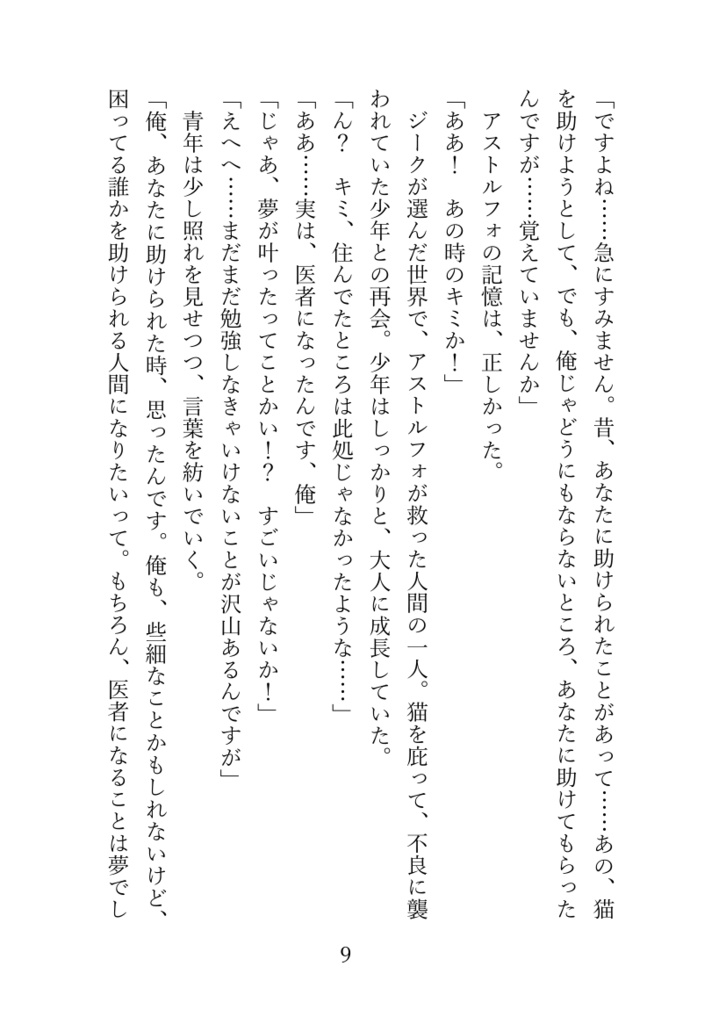 「ですよね……急にすみません。昔、あなたに助けられたことがあって……あの、猫
を助けようとして、でも、俺じゃどうにもならないところ、あなたに助けてもらった
んですが……覚えていませんか」
　アストルフォの記憶は、正しかった。
「ああ！　あの時のキミか！」
　ジークが選んだ世界で、アストルフォが救った人間の一人。猫を庇って、不良に襲
われていた少年との再会。少年はしっかりと、大人に成長していた。
「ん？　キミ、住んでたところは此処じゃなかったような……」
「ああ……実は、医者になったんです、俺」
「じゃあ、夢が叶ったってことかい！？　すごいじゃないか！」
「えへへ……まだまだ勉強しなきゃいけないことが沢山あるんですが」
　青年は少し照れを見せつつ、言葉を紡いでいく。
「俺、あなたに助けられた時、思ったんです。俺も、些細なことかもしれないけど、
困ってる誰かを助けられる人間になりたいって。もちろん、医者になることは夢でし
9